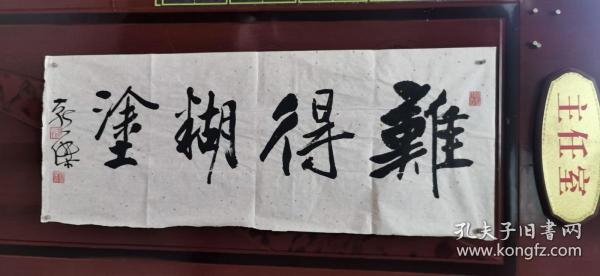 難得糊塗
主任室
孔夫子旧書网
www.kongfz.com